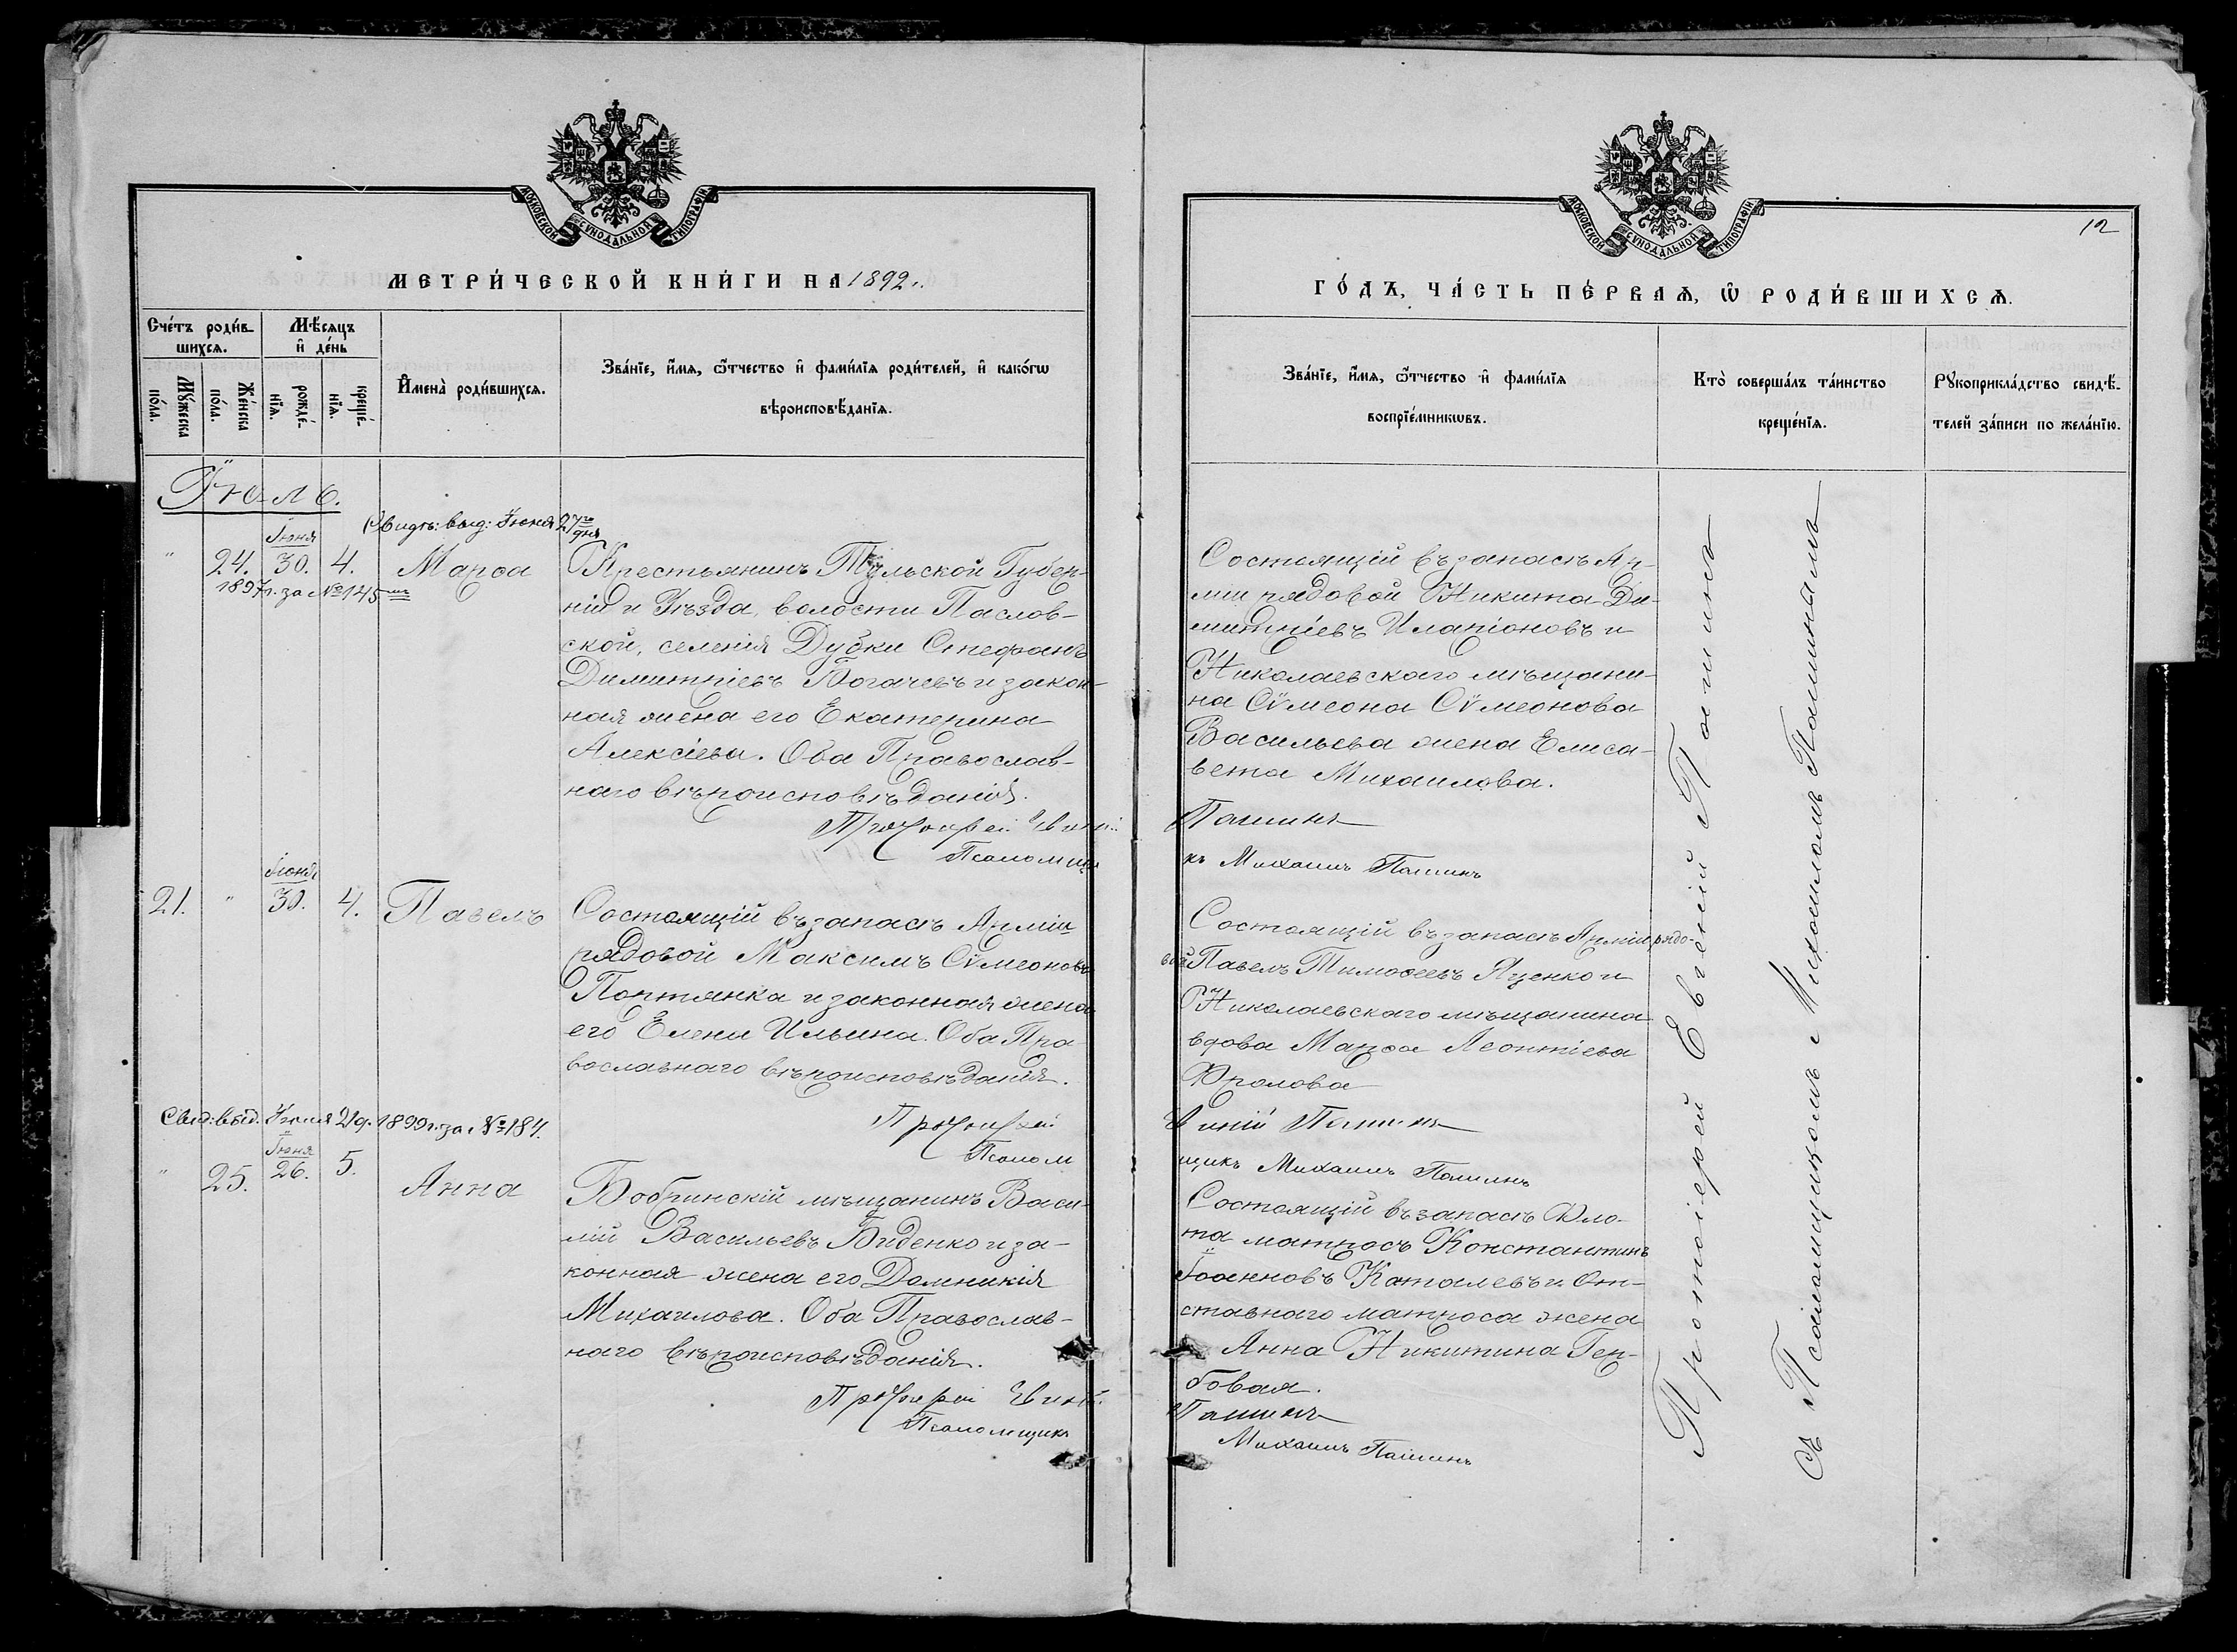 МОСКОВСКОЙ СѴНОДАЛЬНОЙ ТИПОГРАФІИ
МЕТРИ́ЧЕСКОЙ КНИ́ГИ НА 1892.
Сче́тъ роди́в-
шихсѧ.
Мꙋ́жеска
по́ла.
Же́нска
по́ла.
Мѣ́сѧцъ
и҆ де́нь
рожде́-
нїѧ.
креще́-
нїѧ.
И҆мена̀ роди́вшихсѧ.
Зва́нїе, и҆́мѧ, ѻ҆́тчество и҆ фами́лїѧ роди́телей, и҆ како́гѡ
вѣроисповѣ́данїѧ.
Іюль.
Свидѣ: выд: Іюня 27го дня
1897г. за №145мъ
" 24. Іюня 30. 4. Марѳа
Крестьянинъ Тульской Губер-
ніи и Уѣзда, волости Паслов-
ской, селенія Дубки Стефанъ
Димитріевъ Богачевъ и закон-
ная жена его Екатерина
Алексіева. Оба Православ-
наго вѣроисповѣданія.
Протоіерей Евгеній
Псаломщи
21. " Іюня 30. 4. Павелъ
Состоящій въ запасѣ Арміи
рядовой Максимъ Сѵмеоновъ
Портянка и законная жена
его Елена Ильина. Оба Пра-
вославнаго вѣроисповѣданія.
Протоіерей
Псалом
Свид: выд. Іюля 21 д. 1899 г. за №184.
" 25. Іюня 26. 5. Анна
Бобринскій мѣщанинъ Васи-
лій Васильевъ Биденко и за-
конная жена его Домникія
Михаилова. Оба Православ-
наго вѣроисповѣданія.
Протоіерей Евгеній
Псаломщикъ
МОСКОВСКОЙ СѴНОДАЛЬНОЙ ТИПОГРАФІИ
12
ГО́ДЪ, ЧА́СТЬ ПЕ́РВАѦ, Ѡ҆ РОДИ́ВШИХСѦ.
Зва́нїе, и҆́мѧ, ѻ҆́тчество и҆ фами́лїѧ
воспрїе́мникѡвъ.
Кто̀ соверша́лъ та́инство
креще́нїѧ.
Рꙋкоприкла́дство свидѣ́-
телей за́писи по жела́нїю.
Состоящій въ запасѣ Ар-
міи рядовой Никита Ди-
митріевъ Иларіоновъ и
Николаевскаго мѣщани-
на Сѵмеона Сѵмеонова
Васильева жена Елиса-
вета Михаилова.
Пашинъ
къ Михаилъ Пашинъ
Состоящій въ запасѣ Арміи рядо-
вой Павелъ Тимоѳеевъ Яценко и
Николаевскаго мѣщанина
вдова Марѳа Леонтіева
Фролова
Евгеній Пашинъ
щикъ Михаилъ Пашинъ
Состоящій въ запасѣ Фло-
та матросъ Константинъ
Іоанновъ Каталевъ и От-
ставнаго матроса жена
Анна Никитина Гер-
бовая.
Пашинъ
Михаилъ Пашинъ
Протоіерей Евгеній Пашинъ
Съ Псаломщикомъ Михаиломъ Пашинымъ